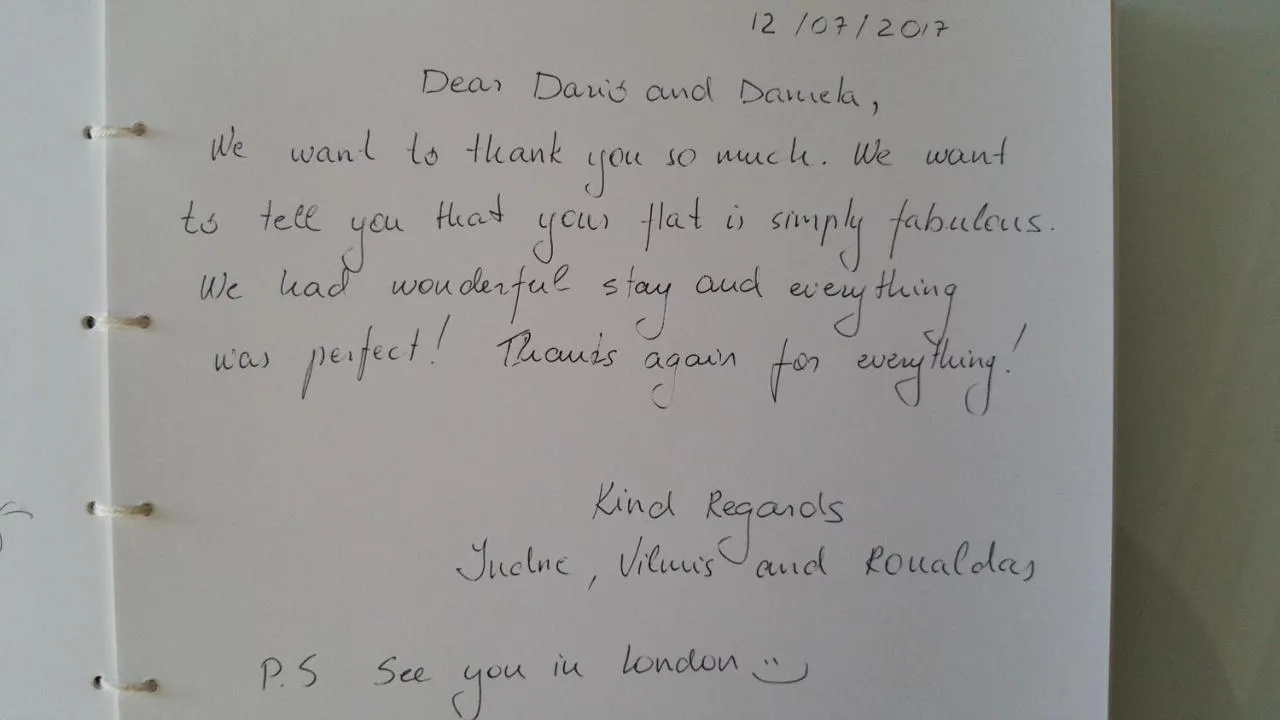 12/07/2017
Dear Dario and Daniela,
We want to thank you so much. We want
to tell you that your flat is simply fabulous.
We had wonderful stay and everything
was perfect! Thanks again for everything!
Kind Regards
, Vilmis and Ronaldas
P.S See you in London :)